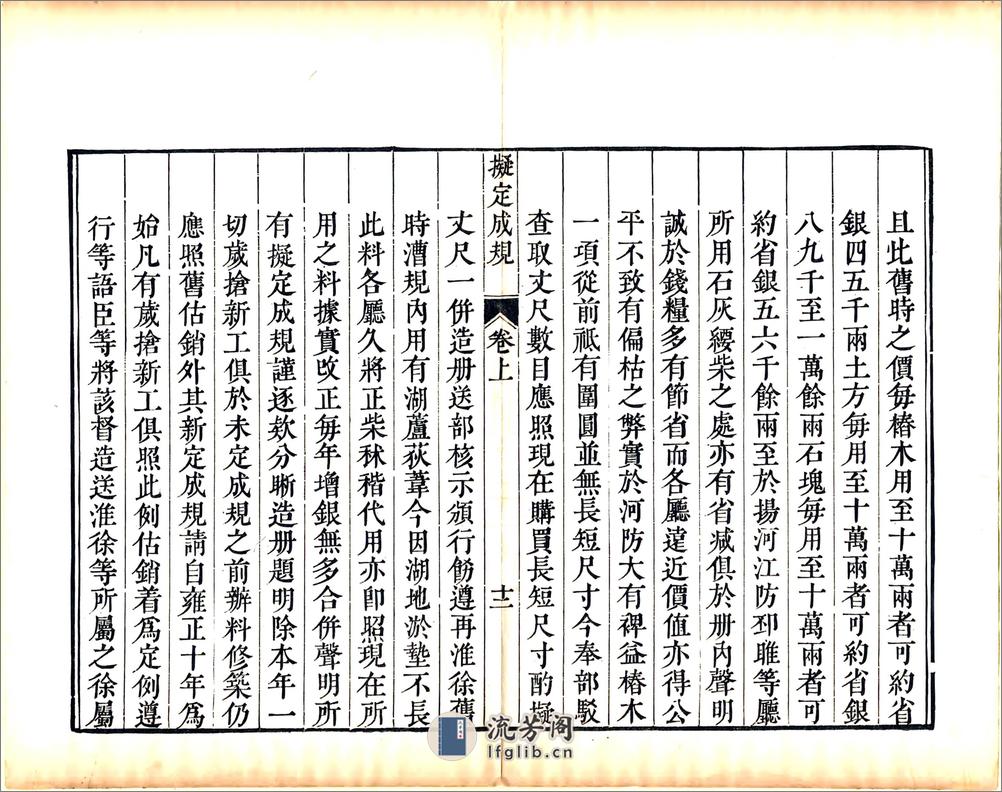 且此舊時之價每樁木用至十萬兩者可約省
銀四五千兩土方每用至十萬兩者可約省銀
八九千至一萬餘兩石塊每用至十萬兩者可
約省銀五六千餘兩至於揚河江防邳睢等廳
所用石灰纓柴之處亦有省减俱於册內聲明
誠於錢糧多有節省而各廳遠近價值亦得公
平不致有偏枯之弊實於河防大有裨益樁木
一項從前祗有圍圓並無長短尺寸今奉部駁
查取丈尺數目應照現在購買長短尺寸酌擬
擬定成規
卷上
十二
丈尺一併造册送部核示頒行飭遵再淮徐舊
時漕規內用有湖蘆荻葦今因湖地淤墊不長
此料各廳久將正柴秫稭代用亦卽照現在所
用之料據實改正每年增銀無多合併聲明所
有擬定成規謹逐欵分晰造册題明除本年一
切歲搶新工俱於未定成規之前辦料修築仍
應照舊估銷外其新定成規請自雍正十年爲
始凡有歲搶新工俱照此例估銷着爲定例遵
行等語臣等將該督造送淮徐等所屬之徐屬
流芳阁
lfglib.cn